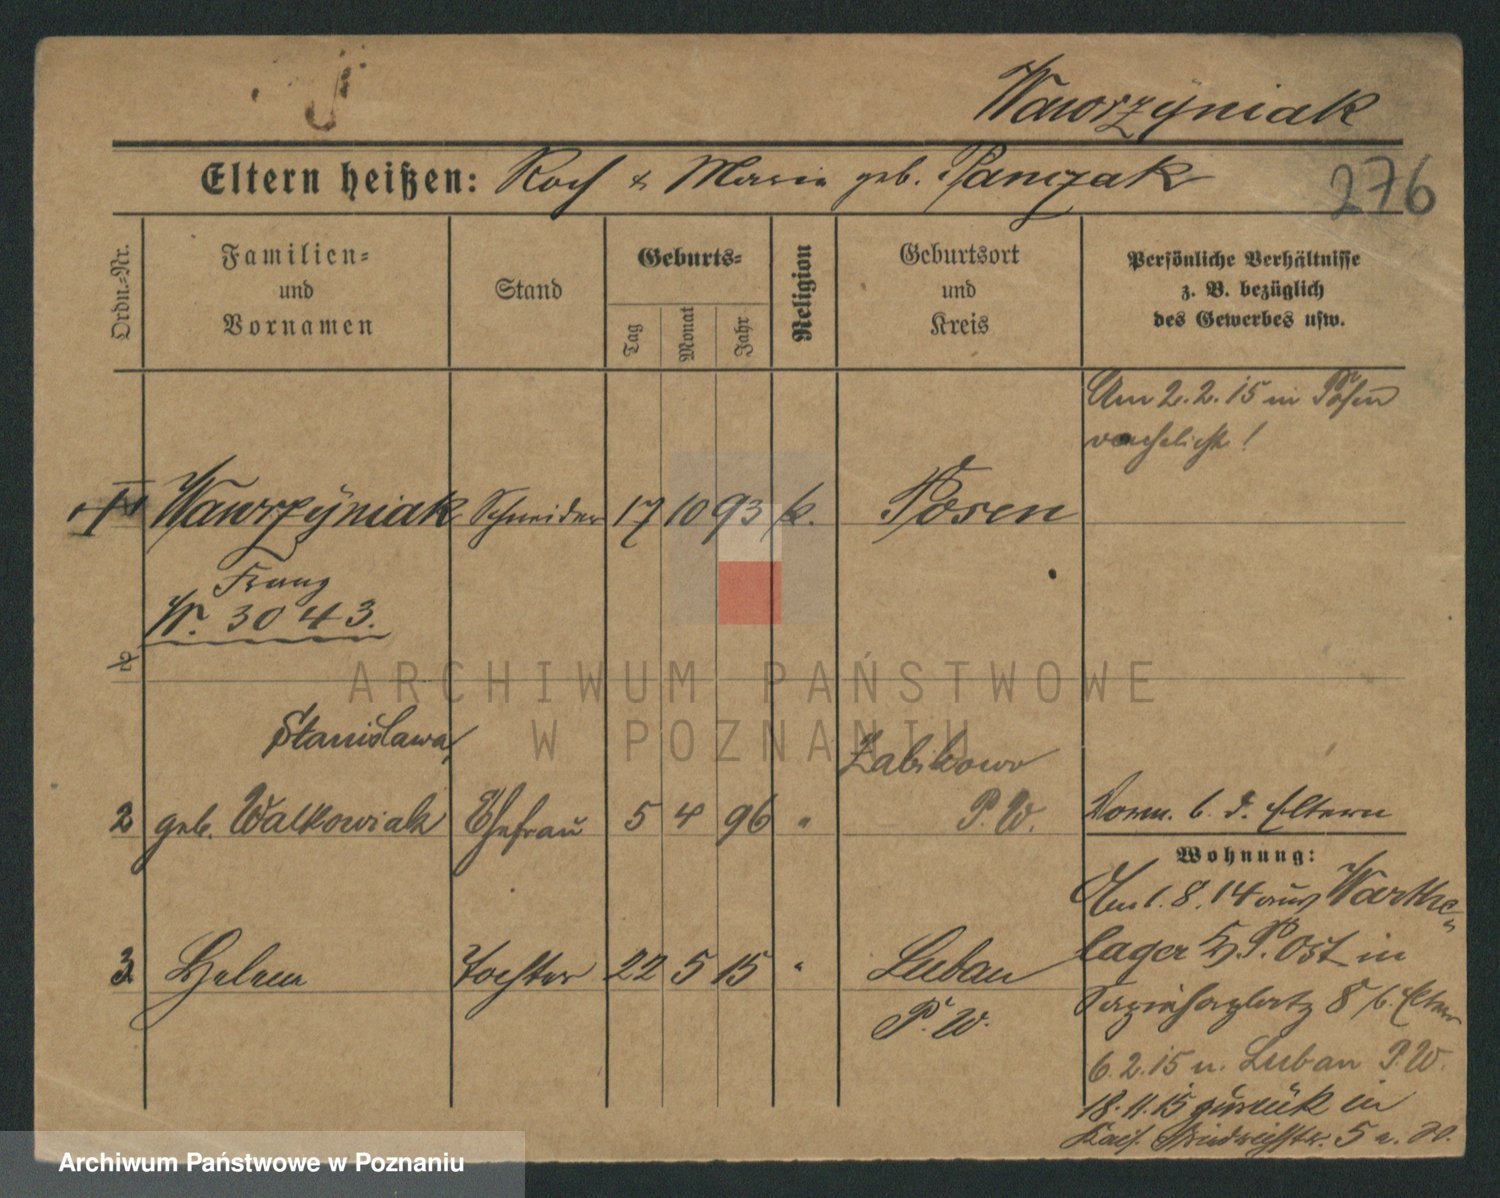 Wawrzyniak
Eltern heißen: Roch & Maria geb. Panczak
276
Ordn.-Nr.
Familien-
und
Vornamen
Stand
Geburts-
Tag
Monat
Jahr
Religion
Geburtsort
und
Kreis
Persönliche Verhältnisse
z. B. bezüglich
des Gewerbes usw.
Am 2.2.15 in Posen
verehelicht!
1 Wawrzyniak Schneider 17 10 93 k. Posen
Franz
W. 3043.
2
Stanislawa,
2 geb. Walkowiak Ehefrau 5 4 96 " Zabikowo
P. W.
Vorm. b. d. Eltern
Wohnung:
3 Helene Tochter 22 5 15 " Luban
P. W.
Am 1.8.14 aus Warthe-
lager P. Ost in
8 b. Eltern
6.2.15 n. Luban P. W.
18.11.15 zurück in
Kais. Friedrichstr. 5 a.
ARCHIWUM PAŃSTWOWE
W POZNANIU
Archiwum Państwowe w Poznaniu